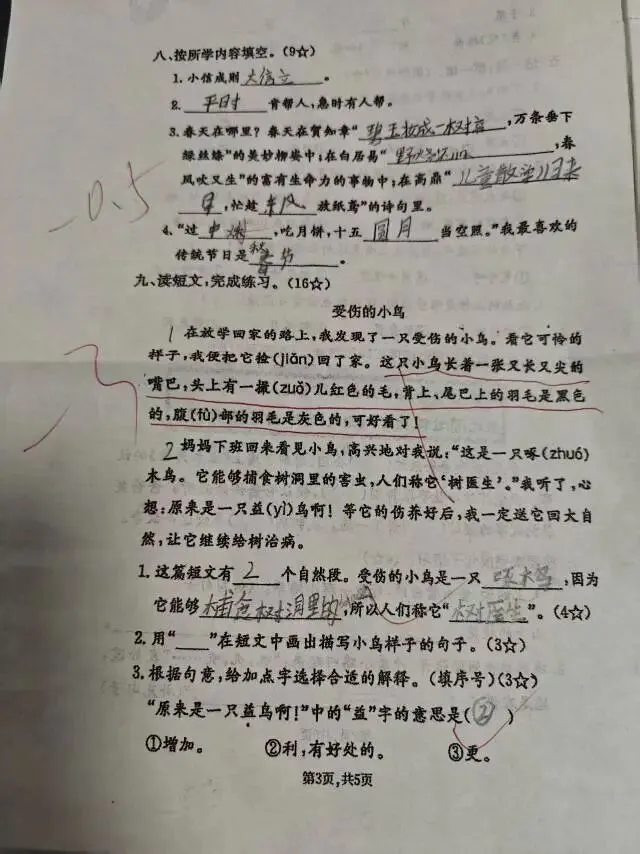 八、按所学内容填空。(9☆)
1. 小信成则 大信立 。
2. 平时 肯帮人,急时有人帮。
3. 春天在哪里？春天在贺知章“碧玉妆成一树高,万条垂下
绿丝绦”的美妙柳姿中;在白居易“野火烧不 ,春
风吹又生”的富有生命力的事物中;在高鼎“儿童散学归来
早,忙趁 东风 放纸鸢”的诗句里。
-0.5
4. “过 中 ,吃月饼,十五 圆月 当空照。”我最喜欢的
传统节日是 节 。
九、读短文,完成练习。(16☆)
受伤的小鸟
1 在放学回家的路上,我发现了一只受伤的小鸟。看它可怜的
样子,我便把它捡(jiǎn)回了家。这只小鸟长着一张又长又尖的
嘴巴,头上有一撮(zuǒ)儿红色的毛,背上、尾巴上的羽毛是黑色
的,腹(fù)部的羽毛是灰色的,可好看了！
-3
2 妈妈下班回来看见小鸟,高兴地对我说:“这是一只啄(zhuó)
木鸟。它能够捕食树洞里的害虫,人们称它‘树医生’。”我听了,心
想:原来是一只益(yì)鸟啊！等它的伤养好后,我一定送它回大自
然,让它继续给树治病。
1. 这篇短文有 2 个自然段。受伤的小鸟是一只 啄木鸟 ,因为
它能够 捕食树洞里的 ,所以人们称它“树医生”。(4☆)
2. 用“____”在短文中画出描写小鸟样子的句子。(3☆)
3. 根据句意,给加点字选择合适的解释。(填序号)(3☆)
“原来是一只益鸟啊！”中的“益”字的意思是( ② )
①增加。 ②利,有好处的。 ③更。
第3页,共5页